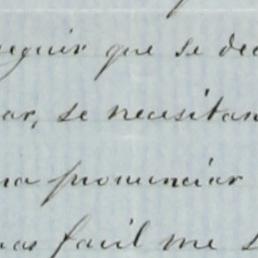 eguir que se dec
ar, se necesitan
na pronunciar
mas facil me s